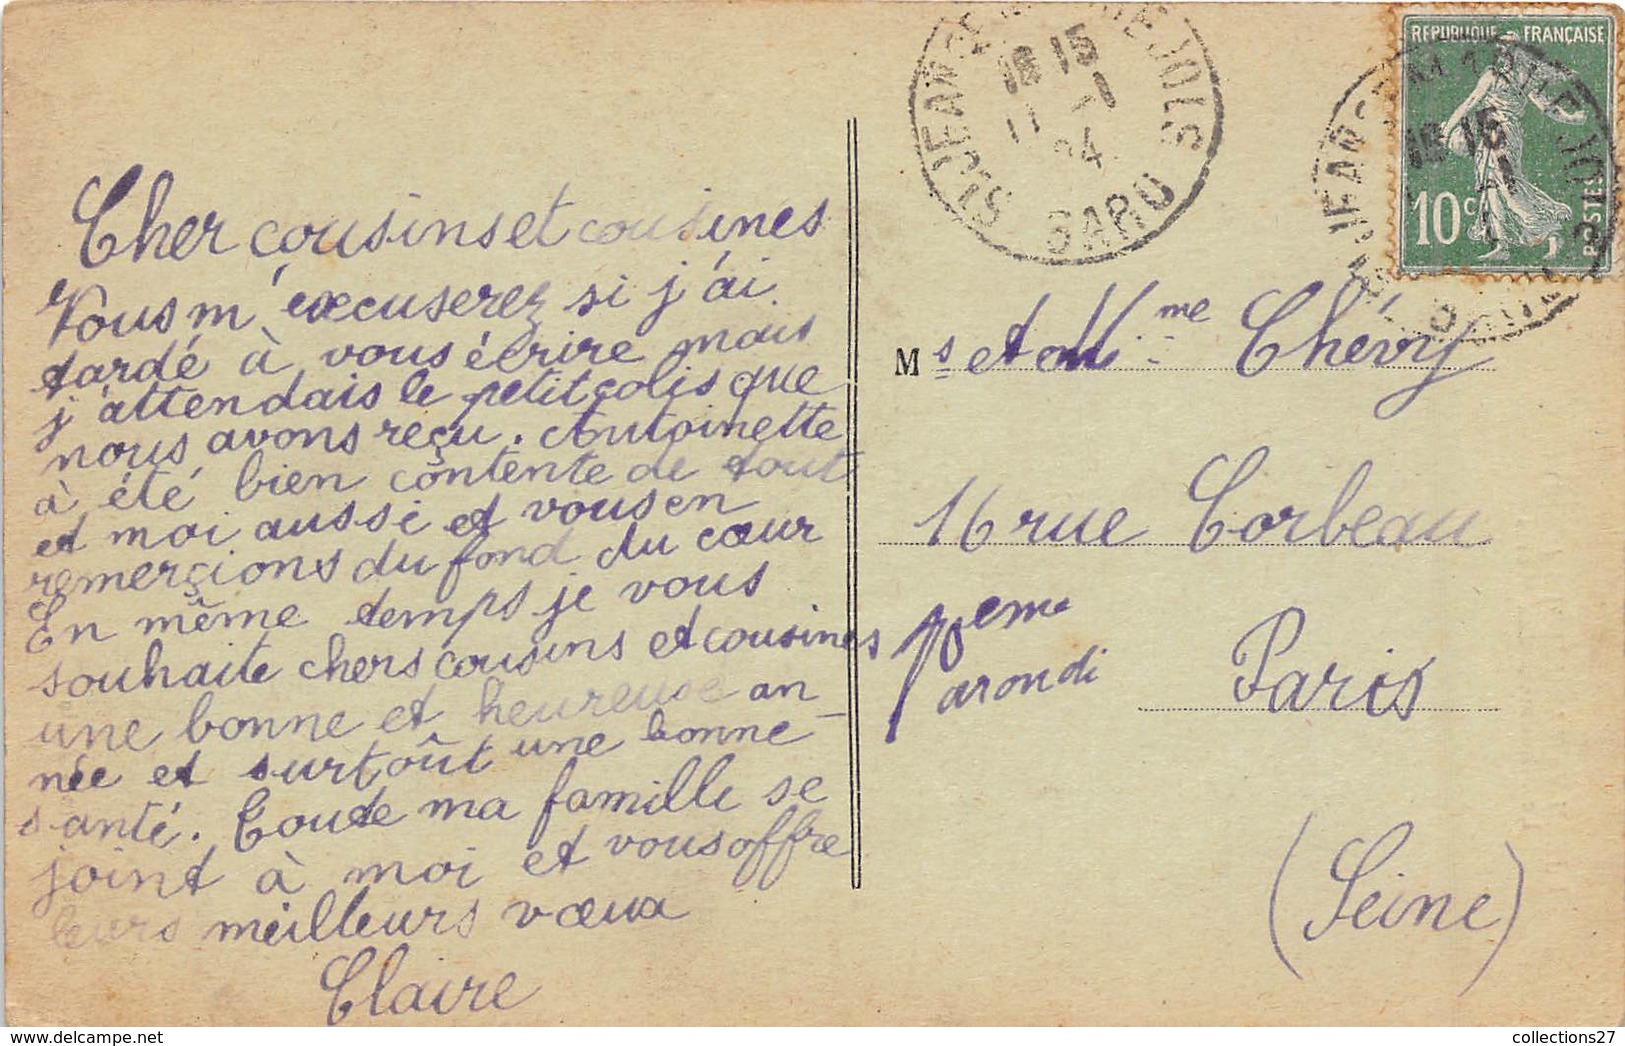 Cher cousins et cousines
Vous m'excuserez si j'ai
tardé à vous écrire mais
j'attendais le petit colis que
nous avons reçu. Antoinette
à été bien contente de tout
et moi aussi et vous en
remerçions du fond du cœur
En même temps je vous
souhaite chers cousins et cousines
une bonne et heureuse an-
née et surtoût une bonne
santé. Toute ma famille se
joint à moi et vous offre
leurs meilleurs vœux
Claire
ST JEAN
15
GARD
RÉPUBLIQUE FRANÇAISE
10c
POSTES
Ms et Mme Chévy
16 rue Corbeau
10eme arondi
Paris
(Seine)
collections27